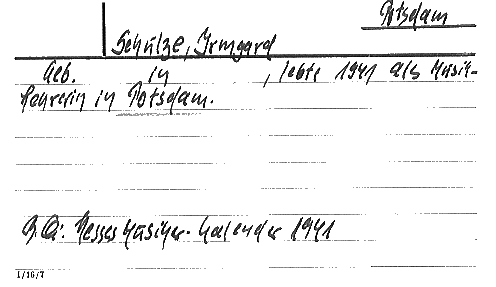 Potsdam
Schulze, Irmgard
Geb. in , lebte 1941 als Musik-
lehrerin in Potsdam.
B. Qu. Hesses Musiker-Kalender 1941
1/16/7